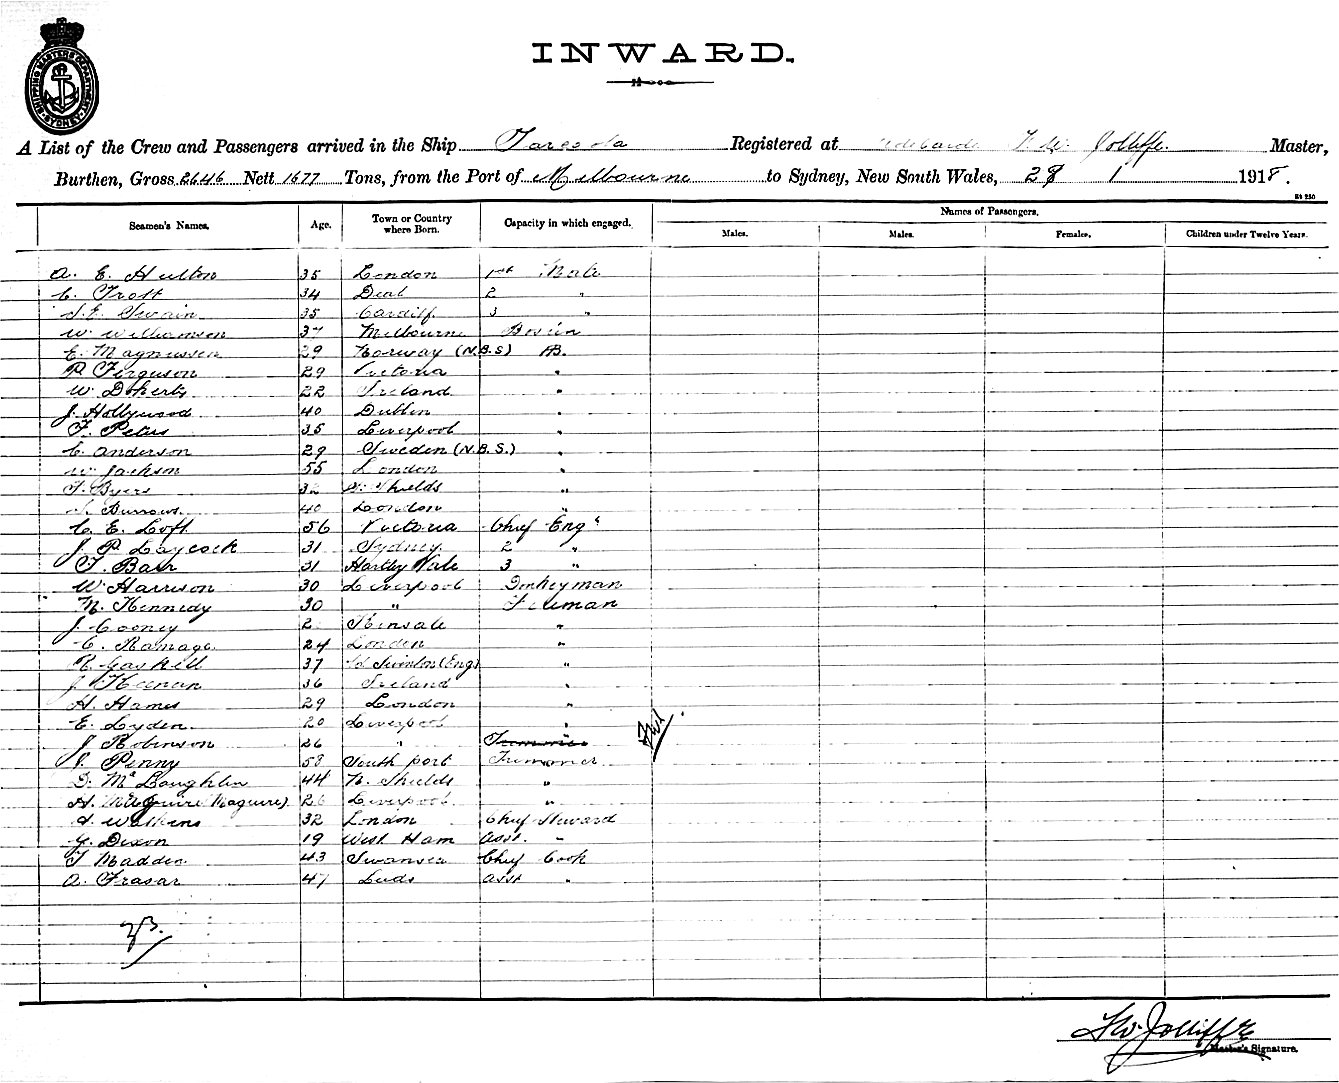 SHIPPING MASTERS DEPARTMENT SYDNEY
INWARD.
A List of the Crew and Passengers arrived in the Ship Registered at T. W. Jolliffe. Master,
Burthen, Gross 2646 Nett 1677 Tons, from the Port of Melbourne to Sydney, New South Wales, 28 1 1918.
Seamen's Names. Age. Town or Country where Born. Capacity in which engaged. Names of Passengers.
Males. Males. Females. Children under Twelve Years.
A. E. Hulton 35 London 1st Mate
C. Trott 34 Deal 2 "
S. E. Swain 35 Cardiff 3 "
W. Williamson 37 Melbourne Bosun
E. Magnussen 29 Norway (N.B.S) AB.
P. Ferguson 29 Victoria "
W. Doherty 22 Ireland "
J. Hollywood 40 Dublin "
F. Peters 35 Liverpool "
C. Anderson 29 Sweden (N.B.S.) "
W. Jackson 55 London "
T. Byers 32 Shields "
Burrows 40 London "
C. E. Loft 56 Victoria Chief Engr
J. P. Laycock 31 Sydney 2 "
T. Barr 31 Hartley Vale 3 "
W. Harrison 30 Liverpool Donkeyman
M. Kennedy 30 " Fireman
J. Cooney Kinsale "
C. Ramage 24 London "
R. Gaskell 37 Swinton (Eng) "
J. Keenan 36 Ireland "
H. Hames 29 London "
E. Lyden 20 Liverpool "
J. Robinson 26 " Trimmer
Penny 58 South port Trimmer
D. McLaughlin 44 N. Shields "
H. McGuire (Maguire) 26 Liverpool "
Watkins 32 London Chief Steward
G. Dixon 19 West Ham Asst. "
T. Madden 43 Swansea Chief Cook
A. Frasar 47 Leeds Asst "
T. W. Jolliffe
Master's Signature.